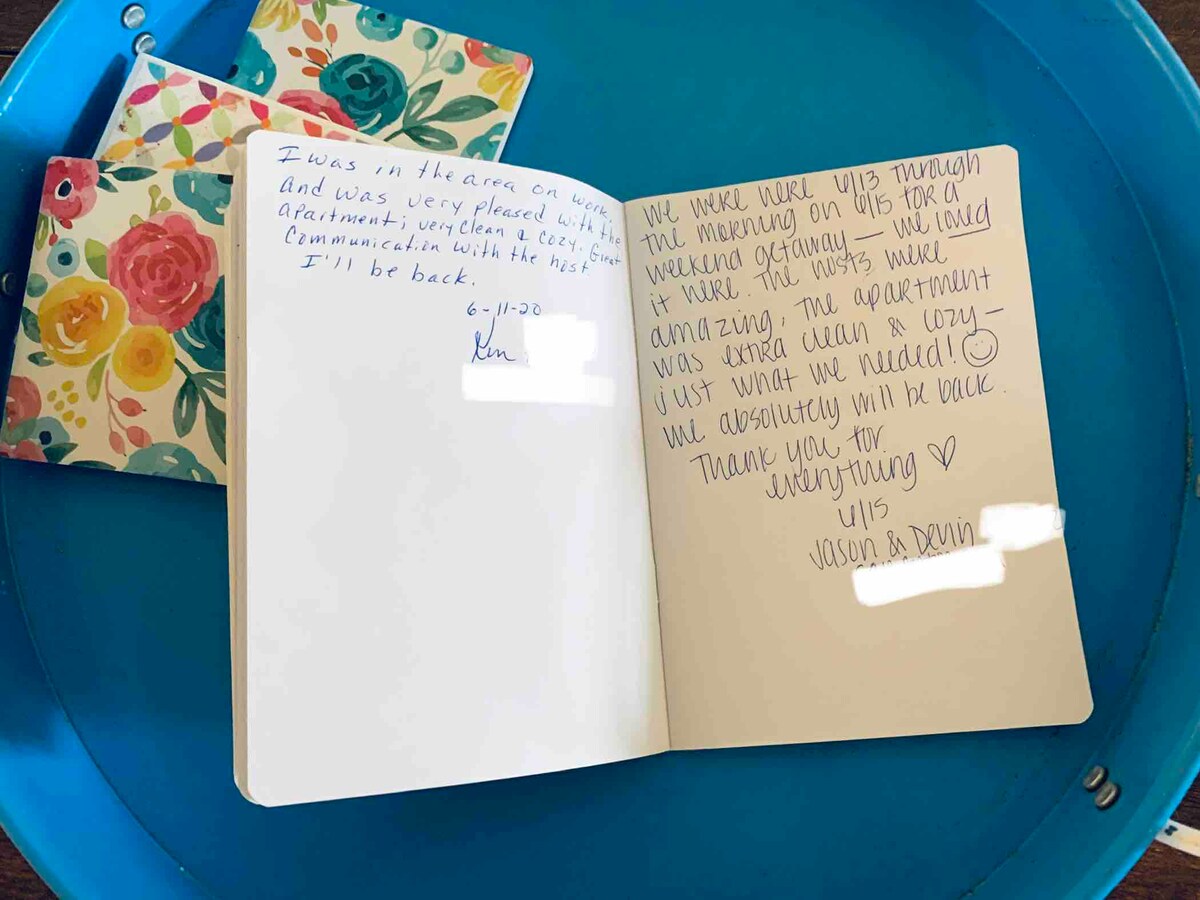 I was in the area on work.
And was very pleased with the
apartment; very clean & cozy. Great
Communication with the host
I'll be back.
6-11-20
Ken
We were here 6/13 through
the morning on 6/15 for a
weekend getaway — we loved
it here. The hosts were
amazing, the apartment
was extra clean & cozy —
just what we needed! ☺
We absolutely will be back.
Thank you for
everything ♡
6/15
Jason & Devin